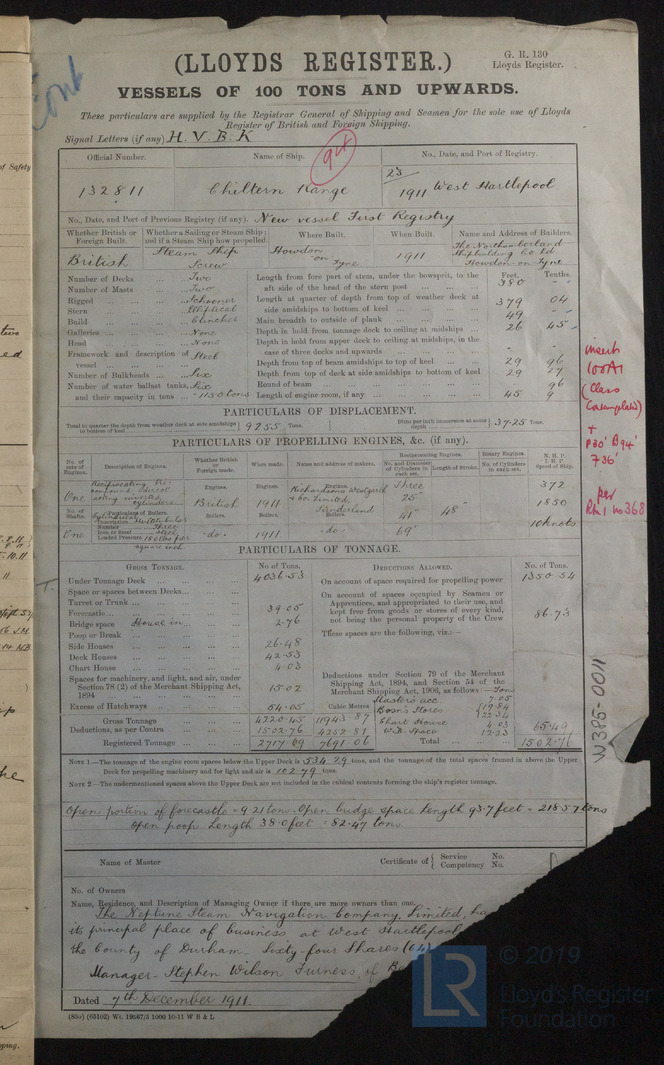 (LLOYDS REGISTER.)
G. R. 130
Lloyds Register.
VESSELS OF 100 TONS AND UPWARDS.
These particulars are supplied by the Registrar General of Shipping and Seamen for the sole use of Lloyds
Register of British and Foreign Shipping.
Signal Letters (if any) H. V. B. K
Official Number. Name of Ship. No., Date, and Port of Registry.
132811 Chiltern Range 23 1911 West Hartlepool
No., Date, and Port of Previous Registry (if any). New vessel First Registry
Whether British or Foreign Built. Whether a Sailing or Steam Ship; and if a Steam Ship how propelled. Where Built. When Built. Name and Address of Builders.
British Steam Ship Screw Howdon on Tyne 1911 The Northumberland Shipbuilding Co Ld Howdon on Tyne
Number of Decks Two Length from fore part of stem, under the bowsprit, to the aft side of the head of the stern post Feet. Tenths. 380 - -
Number of Masts Two
Rigged Schooner Length at quarter of depth from top of weather deck at side amidships to bottom of keel 379 04
Stern Elliptical
Build Clincher Main breadth to outside of plank 49 -
Galleries None Depth in hold from tonnage deck to ceiling at midships 26 45
Head None Depth in hold from upper deck to ceiling at midships, in the case of three decks and upwards - -
Framework and description of vessel Steel Depth from top of beam amidships to top of keel 29 96
Number of Bulkheads Six Depth from top of deck at side amidships to bottom of keel 29 27
Number of water ballast tanks, Six Round of beam 96
and their capacity in tons 1150 tons Length of engine room, if any 45 9
PARTICULARS OF DISPLACEMENT.
Total to quarter the depth from weather deck at side amidships to bottom of keel 9255 Tons. Ditto per inch immersion at same depth 37.25 Tons.
PARTICULARS OF PROPELLING ENGINES, &c. (if any).
No. of sets of Engines. Description of Engines. Whether British or Foreign made. When made. Name and address of makers. Reciprocating Engines. Rotary Engines. N. H. P. I. H. P. Speed of Ship.
No. and Diameter of Cylinders in each set. Length of Stroke. No. of Cylinders in each set.
One Reciprocating Tri compound direct acting inverted cylinders Engines. British Engines. 1911 Engines. Richardsons Westgarth & Co. Limited Sunderland Three 25" 41" 69" 48" 372 1850 10 knots
No. of Shafts. Particulars of Boilers. Boilers. Boilers. Boilers.
One Description Cylindrical Multitubular Number Three Iron or Steel Steel Loaded Pressure 180 lbs per square inch -do- 1911 -do-
PARTICULARS OF TONNAGE.
GROSS TONNAGE. No. of Tons. DEDUCTIONS ALLOWED. No. of Tons.
Under Tonnage Deck 4036.53 On account of space required for propelling power 1350.54
Space or spaces between Decks
Turret or Trunk
On account of spaces occupied by Seamen or Apprentices, and appropriated to their use, and kept free from goods or stores of every kind, not being the personal property of the Crew 86.73
Forecastle 39.05
Bridge space House in 2.76
Poop or Break
These spaces are the following, viz.:—
Side Houses 26.48
Deck Houses 42.53
Chart House 4.03
Spaces for machinery, and light, and air, under Section 78 (2) of the Merchant Shipping Act, 1894 15.02
Deductions under Section 79 of the Merchant Shipping Act, 1894, and Section 54 of the Merchant Shipping Act, 1906, as follows:— Tons
Excess of Hatchways 54.05 Cubic Metres
Masters acc 7.05
Bosn's Stores 19.84 22.34
Gross Tonnage 4220.45 11943.87 Chart House 4.03
Deductions, as per Contra 1502.76 4252.81 W.B. Space 12.23 65.49
Registered Tonnage 2717.69 7691.06 Total 1502.76
NOTE 1.—The tonnage of the engine room spaces below the Upper Deck is 534.29 tons, and the tonnage of the total spaces framed in above the Upper
Deck for propelling machinery and for light and air is 102.79 tons.
NOTE 2.—The undermentioned spaces above the Upper Deck are not included in the cubical contents forming the ship's register tonnage.
Open portion of forecastle = 9.21 tons. Open bridge space Length 93.7 feet = 218.57 tons
Open poop Length 38.0 feet = 82.47 tons
Name of Master Certificate of { Service No. Competency No.
No. of Owners
Name, Residence, and Description of Managing Owner if there are more owners than one.
The Neptune Steam Navigation Company, Limited, ha
its principal place of business at West Hartlepool
the County of Durham Sixty four Shares (64)
Manager - Stephen Wilson Furness, of
Dated 7th December 1911.
(85o) (65102) Wt. 19667/3 1000 10-11 W B & L
insert
100A1
(Class
Contemplated)
+
P30' B94'
F36'
per
Rh 1 no 368
W385-0011
Cont
of Safety
© 2019
LR
Lloyd's Register
Foundation